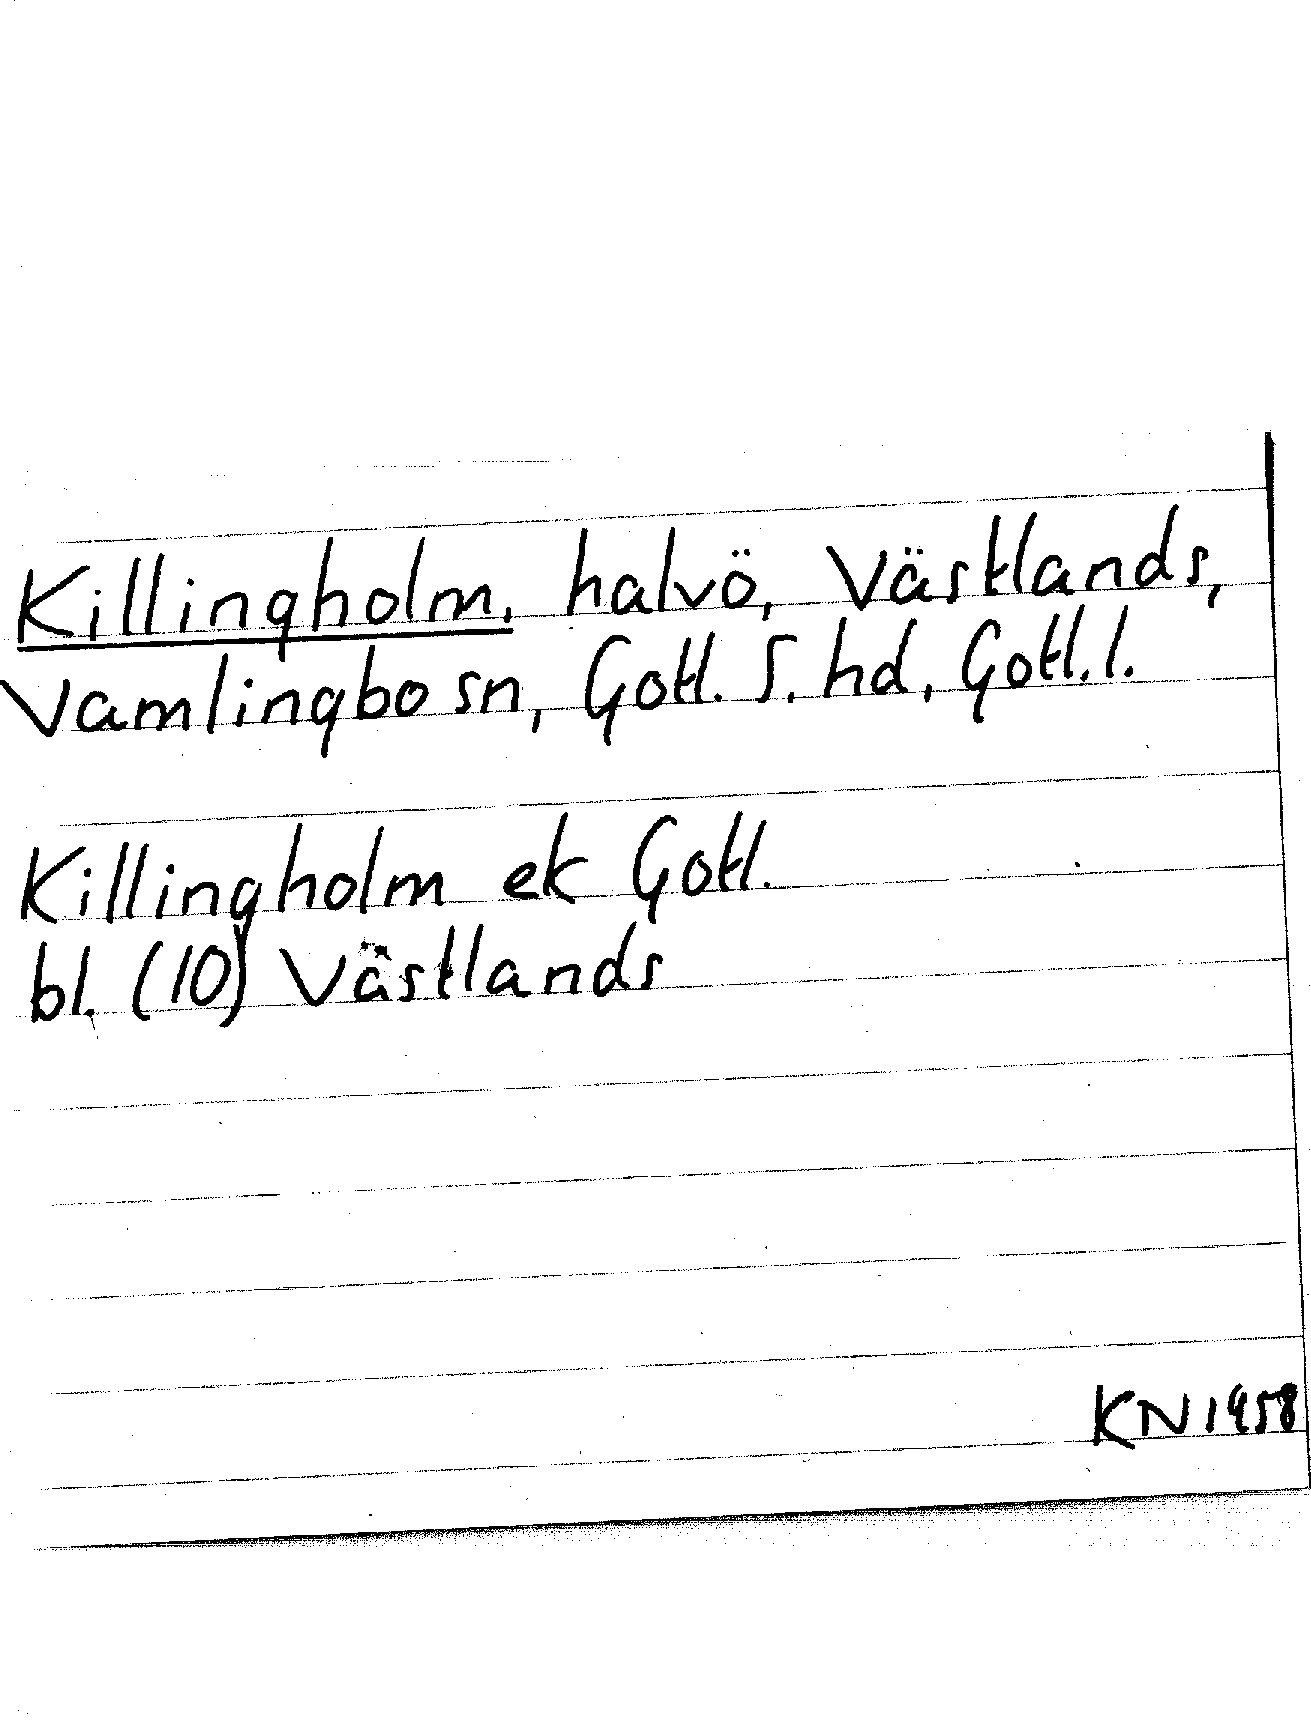 Killingholm, halvö, Västlands,
Vamlingbo sn, Gotl. S. hd, Gotl. l.
Killingholm ek Gotl.
bl. (10) Västlands
KN 1958